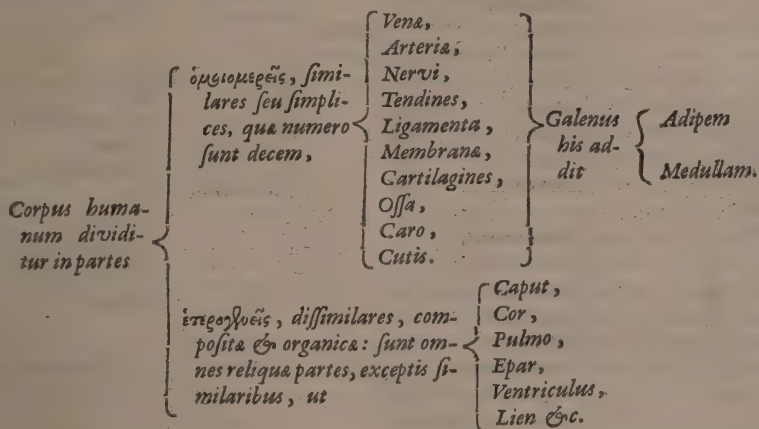 Corpus huma-
num dividi-
tur in partes
ὁμοιομερεῖς, ſimi-
lares ſeu ſimpli-
ces, quæ numero
ſunt decem,
Venæ,
Arteriæ,
Nervi,
Tendines,
Ligamenta,
Membranæ,
Cartilagines,
Oſſa,
Caro,
Cutis.
Galenus
his ad-
dit
Adipem
Medullam.
ἑτερογενεῖς, diſſimilares, com-
poſitæ & organicæ: ſunt om-
nes reliquæ partes, exceptis ſi-
milaribus, ut
Caput,
Cor,
Pulmo,
Epar,
Ventriculus,
Lien &c.